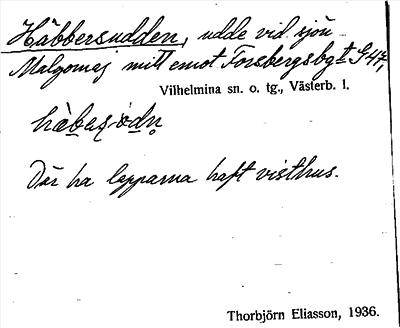 Häbbersudden, udde vid sjön
Malgomaj mitt emot Forsbergsbgt G 47,
Vilhelmina sn. o. tg., Västerb. l.
Där ha lapparna haft visthus.
Thorbjörn Eliasson, 1936.